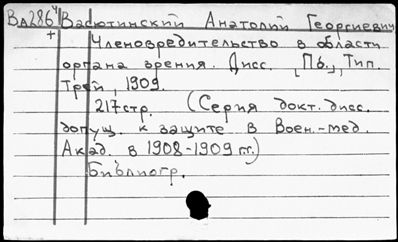 Вл286ч Васютинский Анатолий Георгиевич
+ Членовредительство в области
органа зрения. Дисс. [Пб.], Тип.
Трей, 1909.
217стр. (Серия докт. дисс.
допущ. к защите в Воен.-мед.
Акад. в 1908-1909 гг.)
Библиогр.